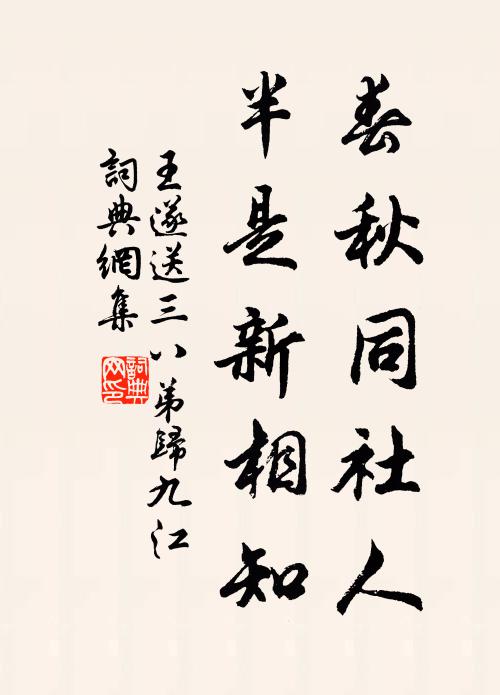 春秋同社人
半是新相知
王遂送三八弟歸九江
詞典網集
詞典网印